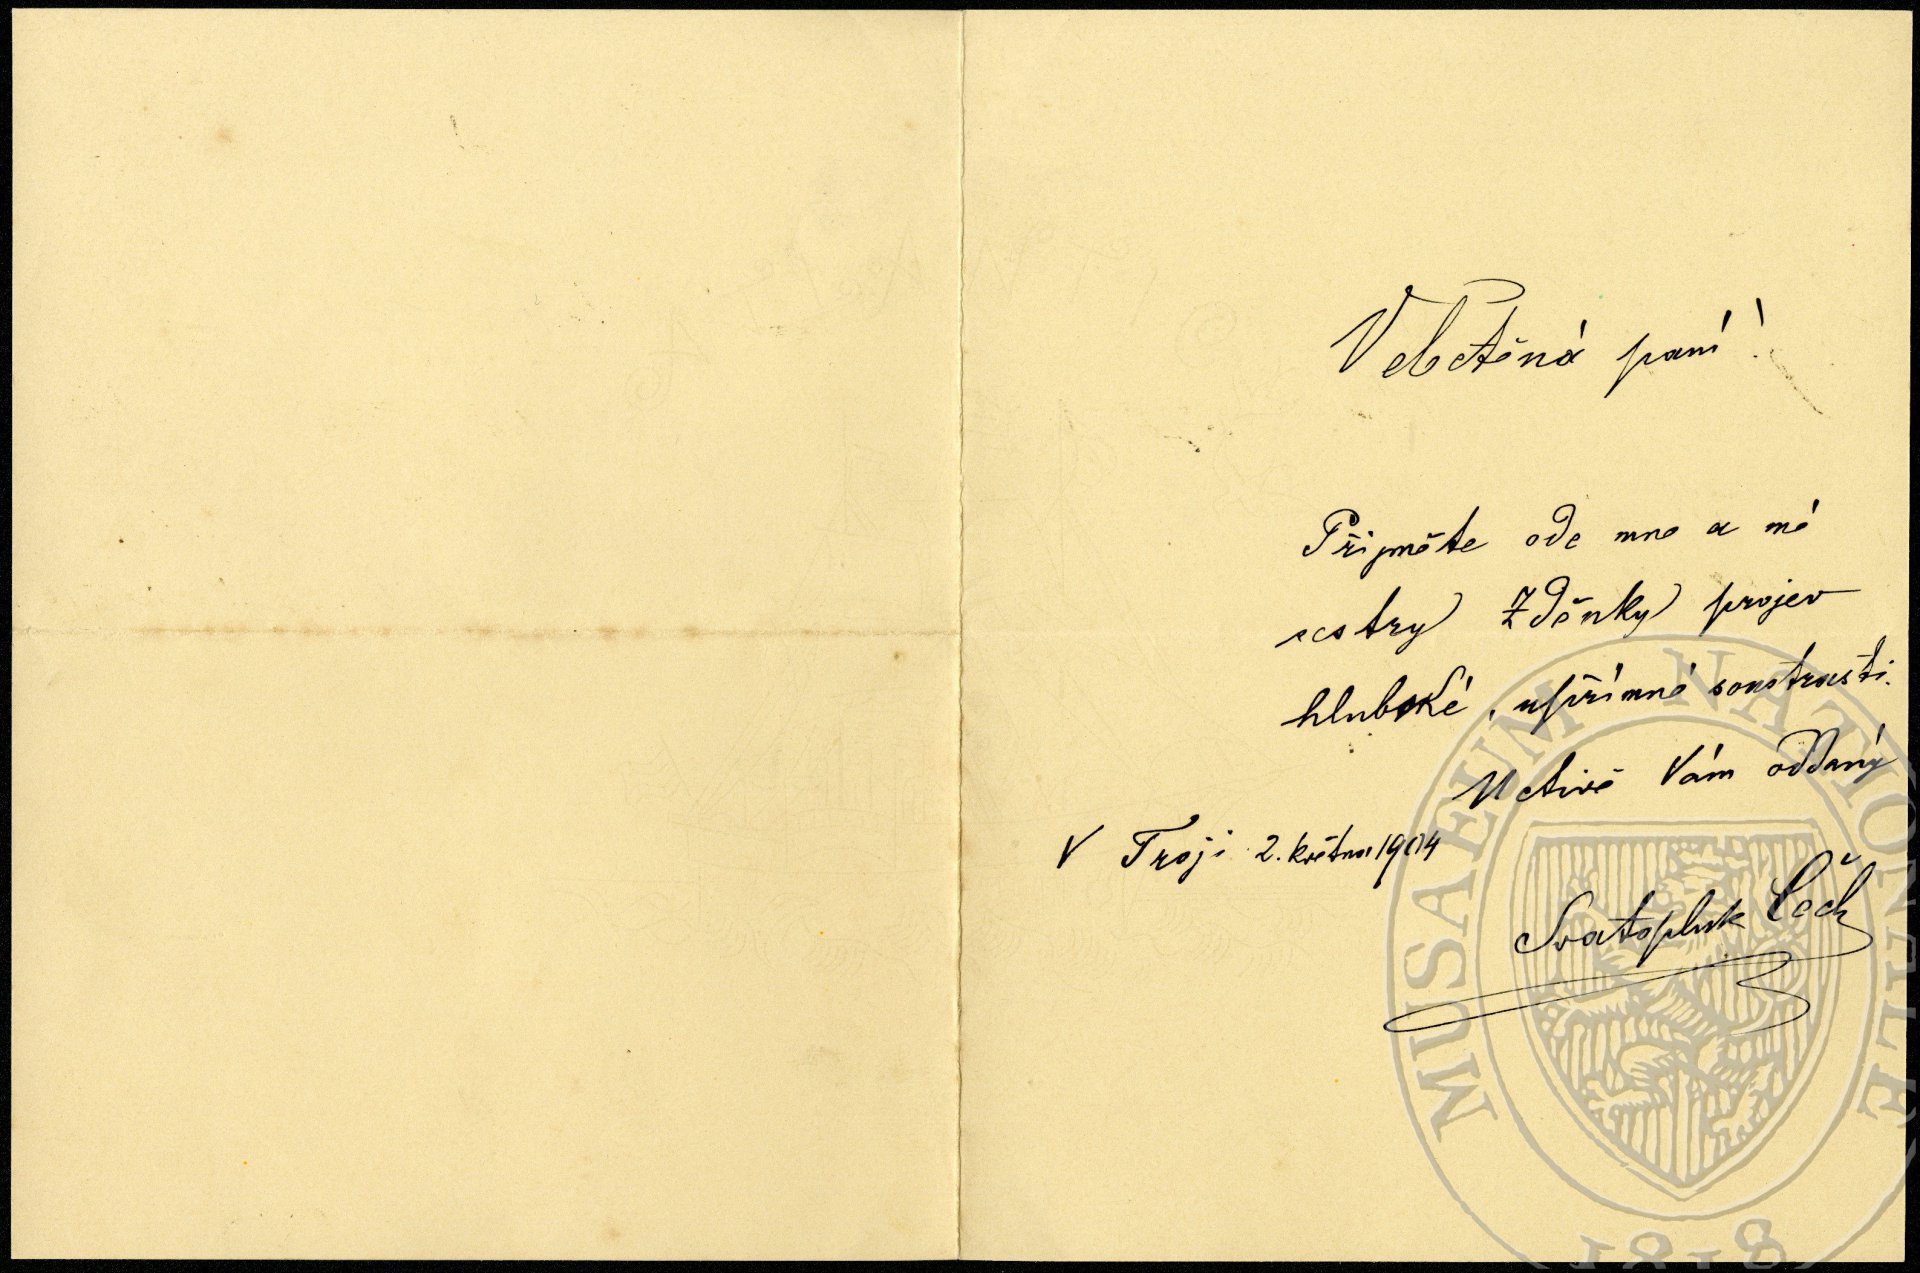 Velectěná paní!
Přijměte ode mne a mé
sestry Zděnky projev
hluboké, upřímné soustrasti.
Uctivě Vám oddaný
V Troji 2. května 1904
Svatopluk Čech
MUSAEUM NATIONALE
1818